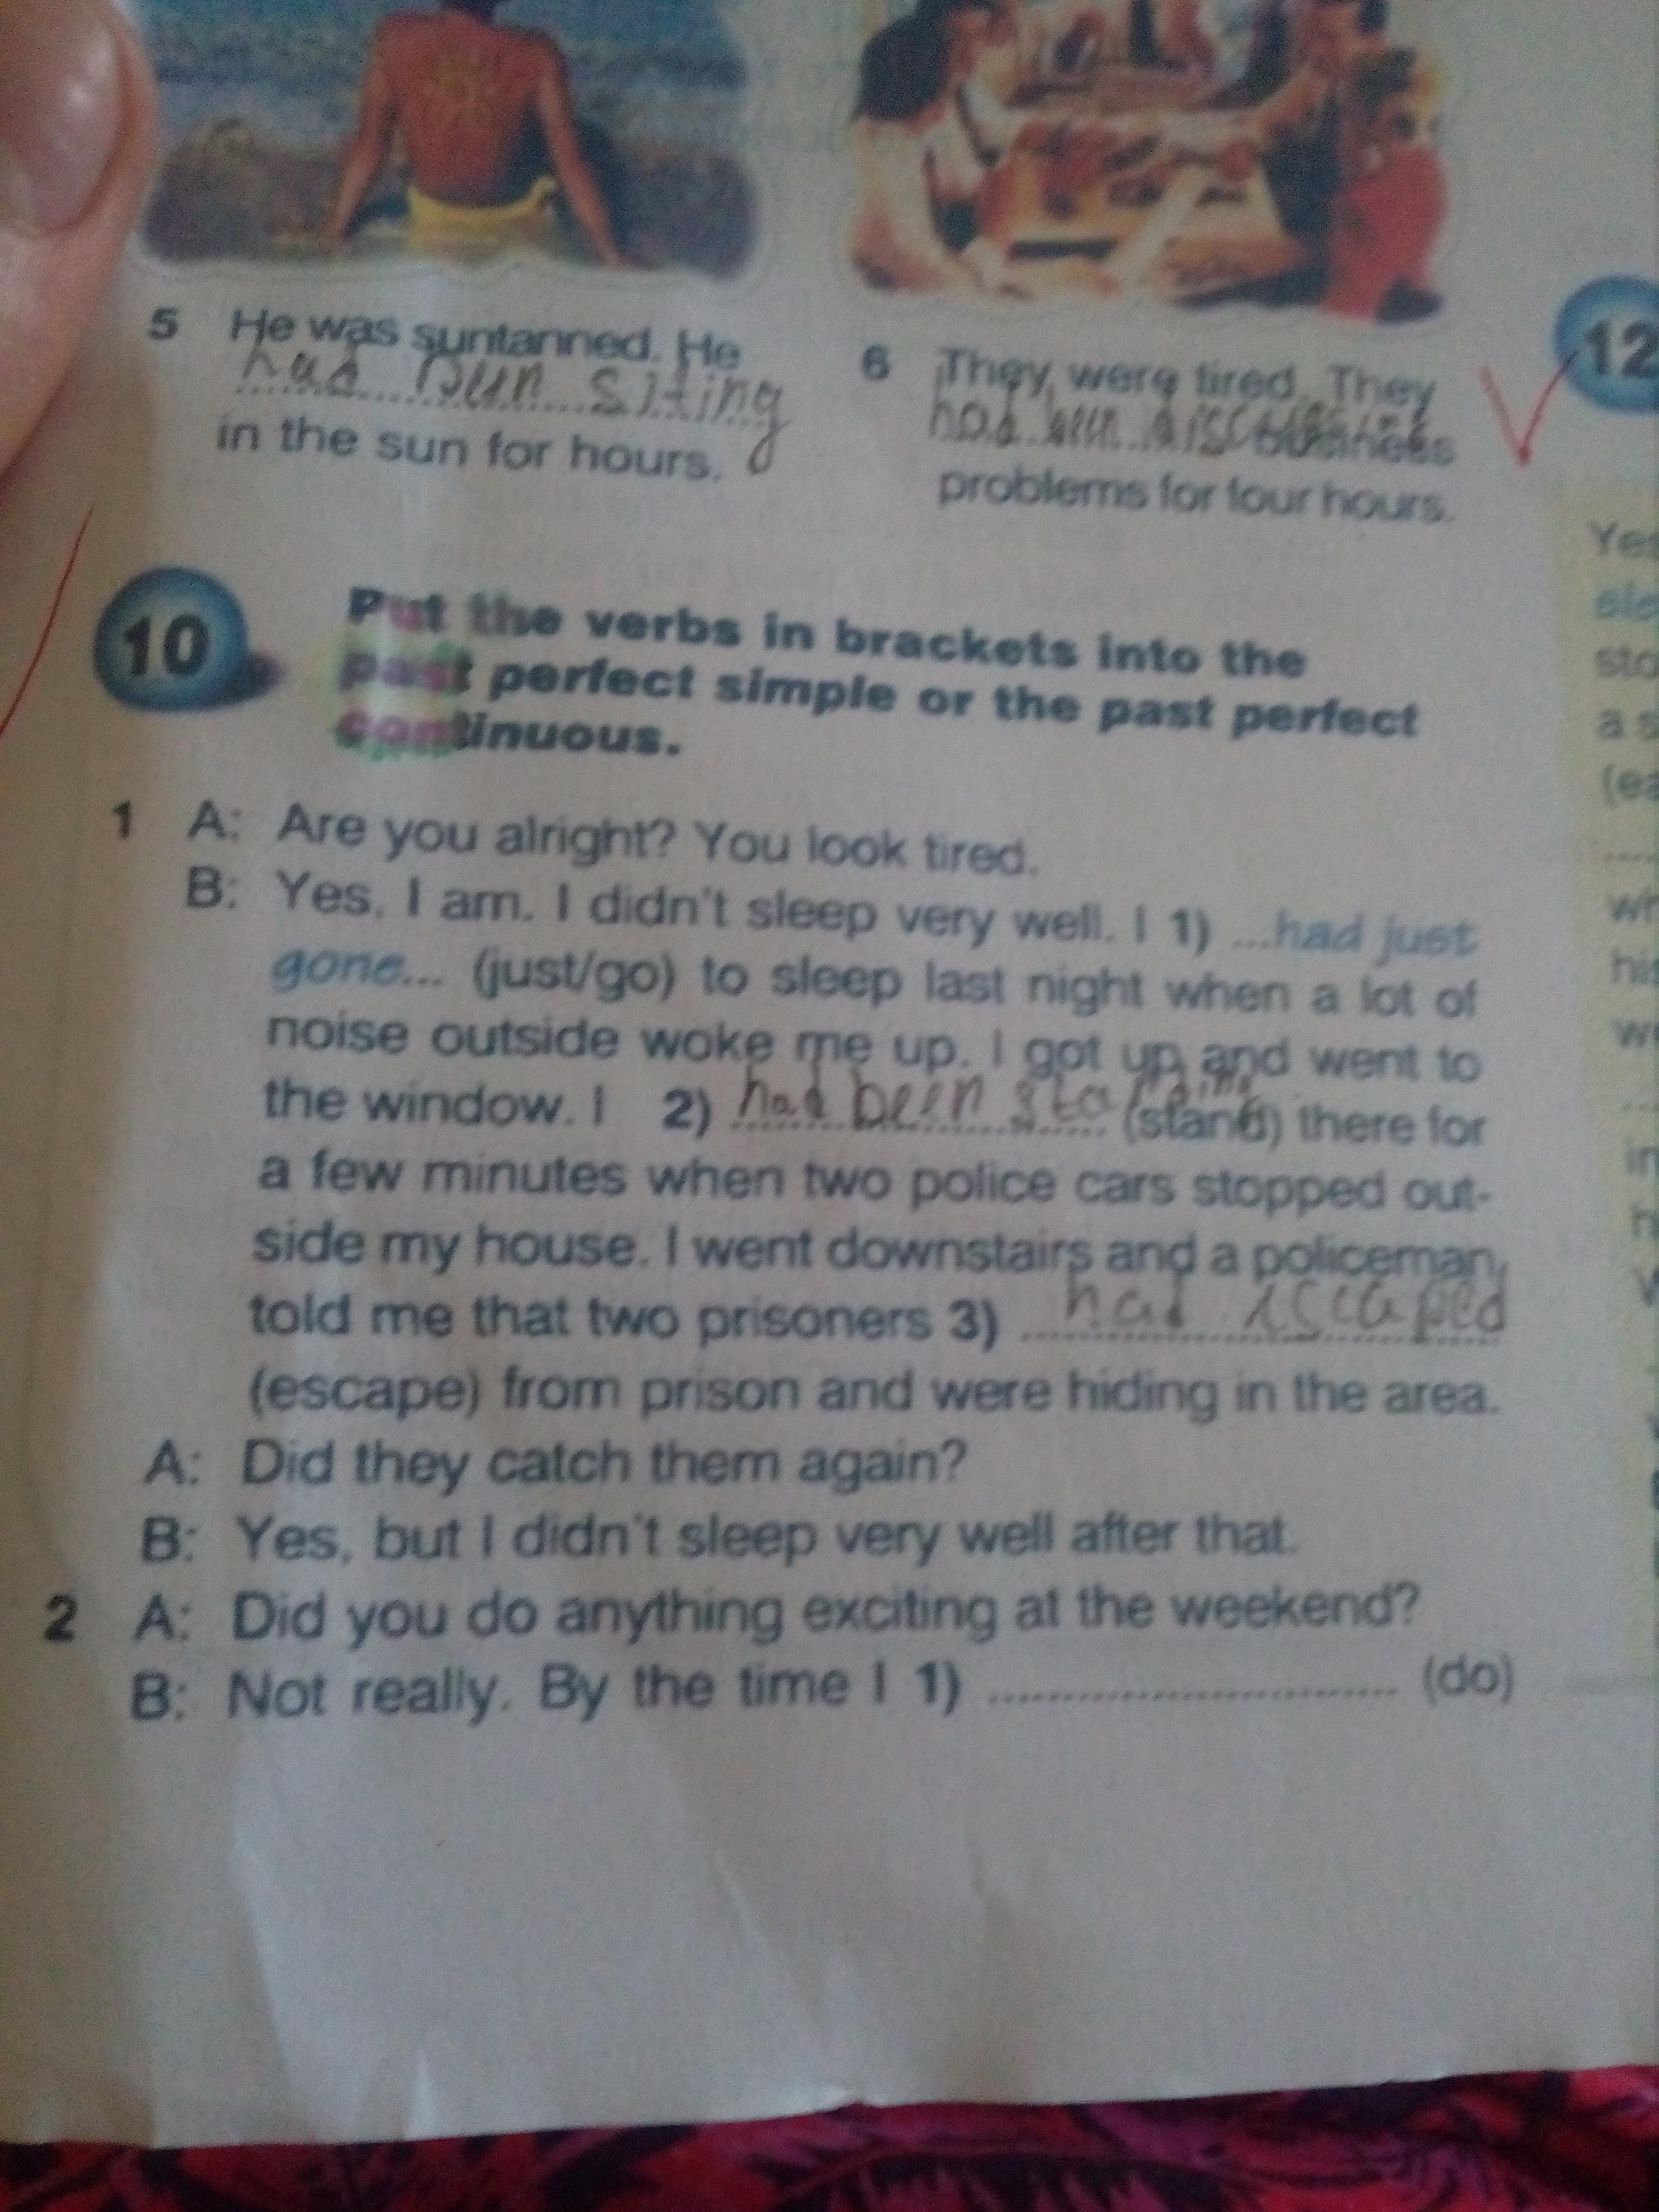 5 He was suntanned. He
had been sitting
in the sun for hours.
6 They were tired. They
had been discussing business
problems for four hours.
12
10 Put the verbs in brackets into the
past perfect simple or the past perfect
continuous.
1 A: Are you alright? You look tired.
B: Yes, I am. I didn't sleep very well. I 1) ...had just
gone... (just/go) to sleep last night when a lot of
noise outside woke me up. I got up and went to
the window. I 2) had been standing (stand) there for
a few minutes when two police cars stopped out-
side my house. I went downstairs and a policeman
told me that two prisoners 3) had escaped
(escape) from prison and were hiding in the area.
A: Did they catch them again?
B: Yes, but I didn't sleep very well after that.
2 A: Did you do anything exciting at the weekend?
B: Not really. By the time I 1) .............................. (do)
Yes
sto
a s
(ea